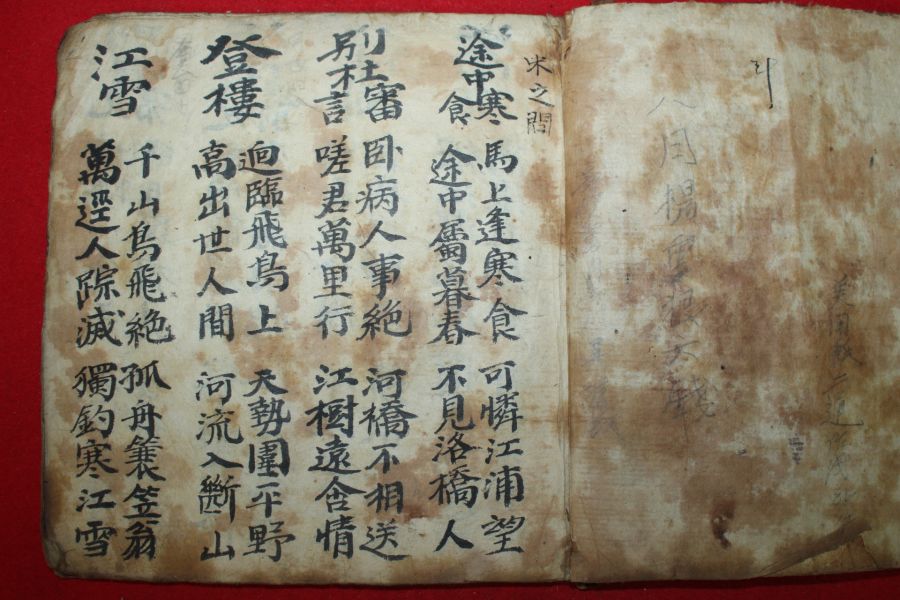 八月
宋之問
途中寒食
馬上逢寒食
途中屬暮春
可憐江浦望
不見洛橋人
別杜審言
卧病人事絶
嗟君萬里行
河橋不相送
江樹遠含情
登樓
迥臨飛鳥上
高出世人間
天勢圍平野
河流入斷山
江雪
千山鳥飛絶
萬逕人踪滅
孤舟簑笠翁
獨釣寒江雪